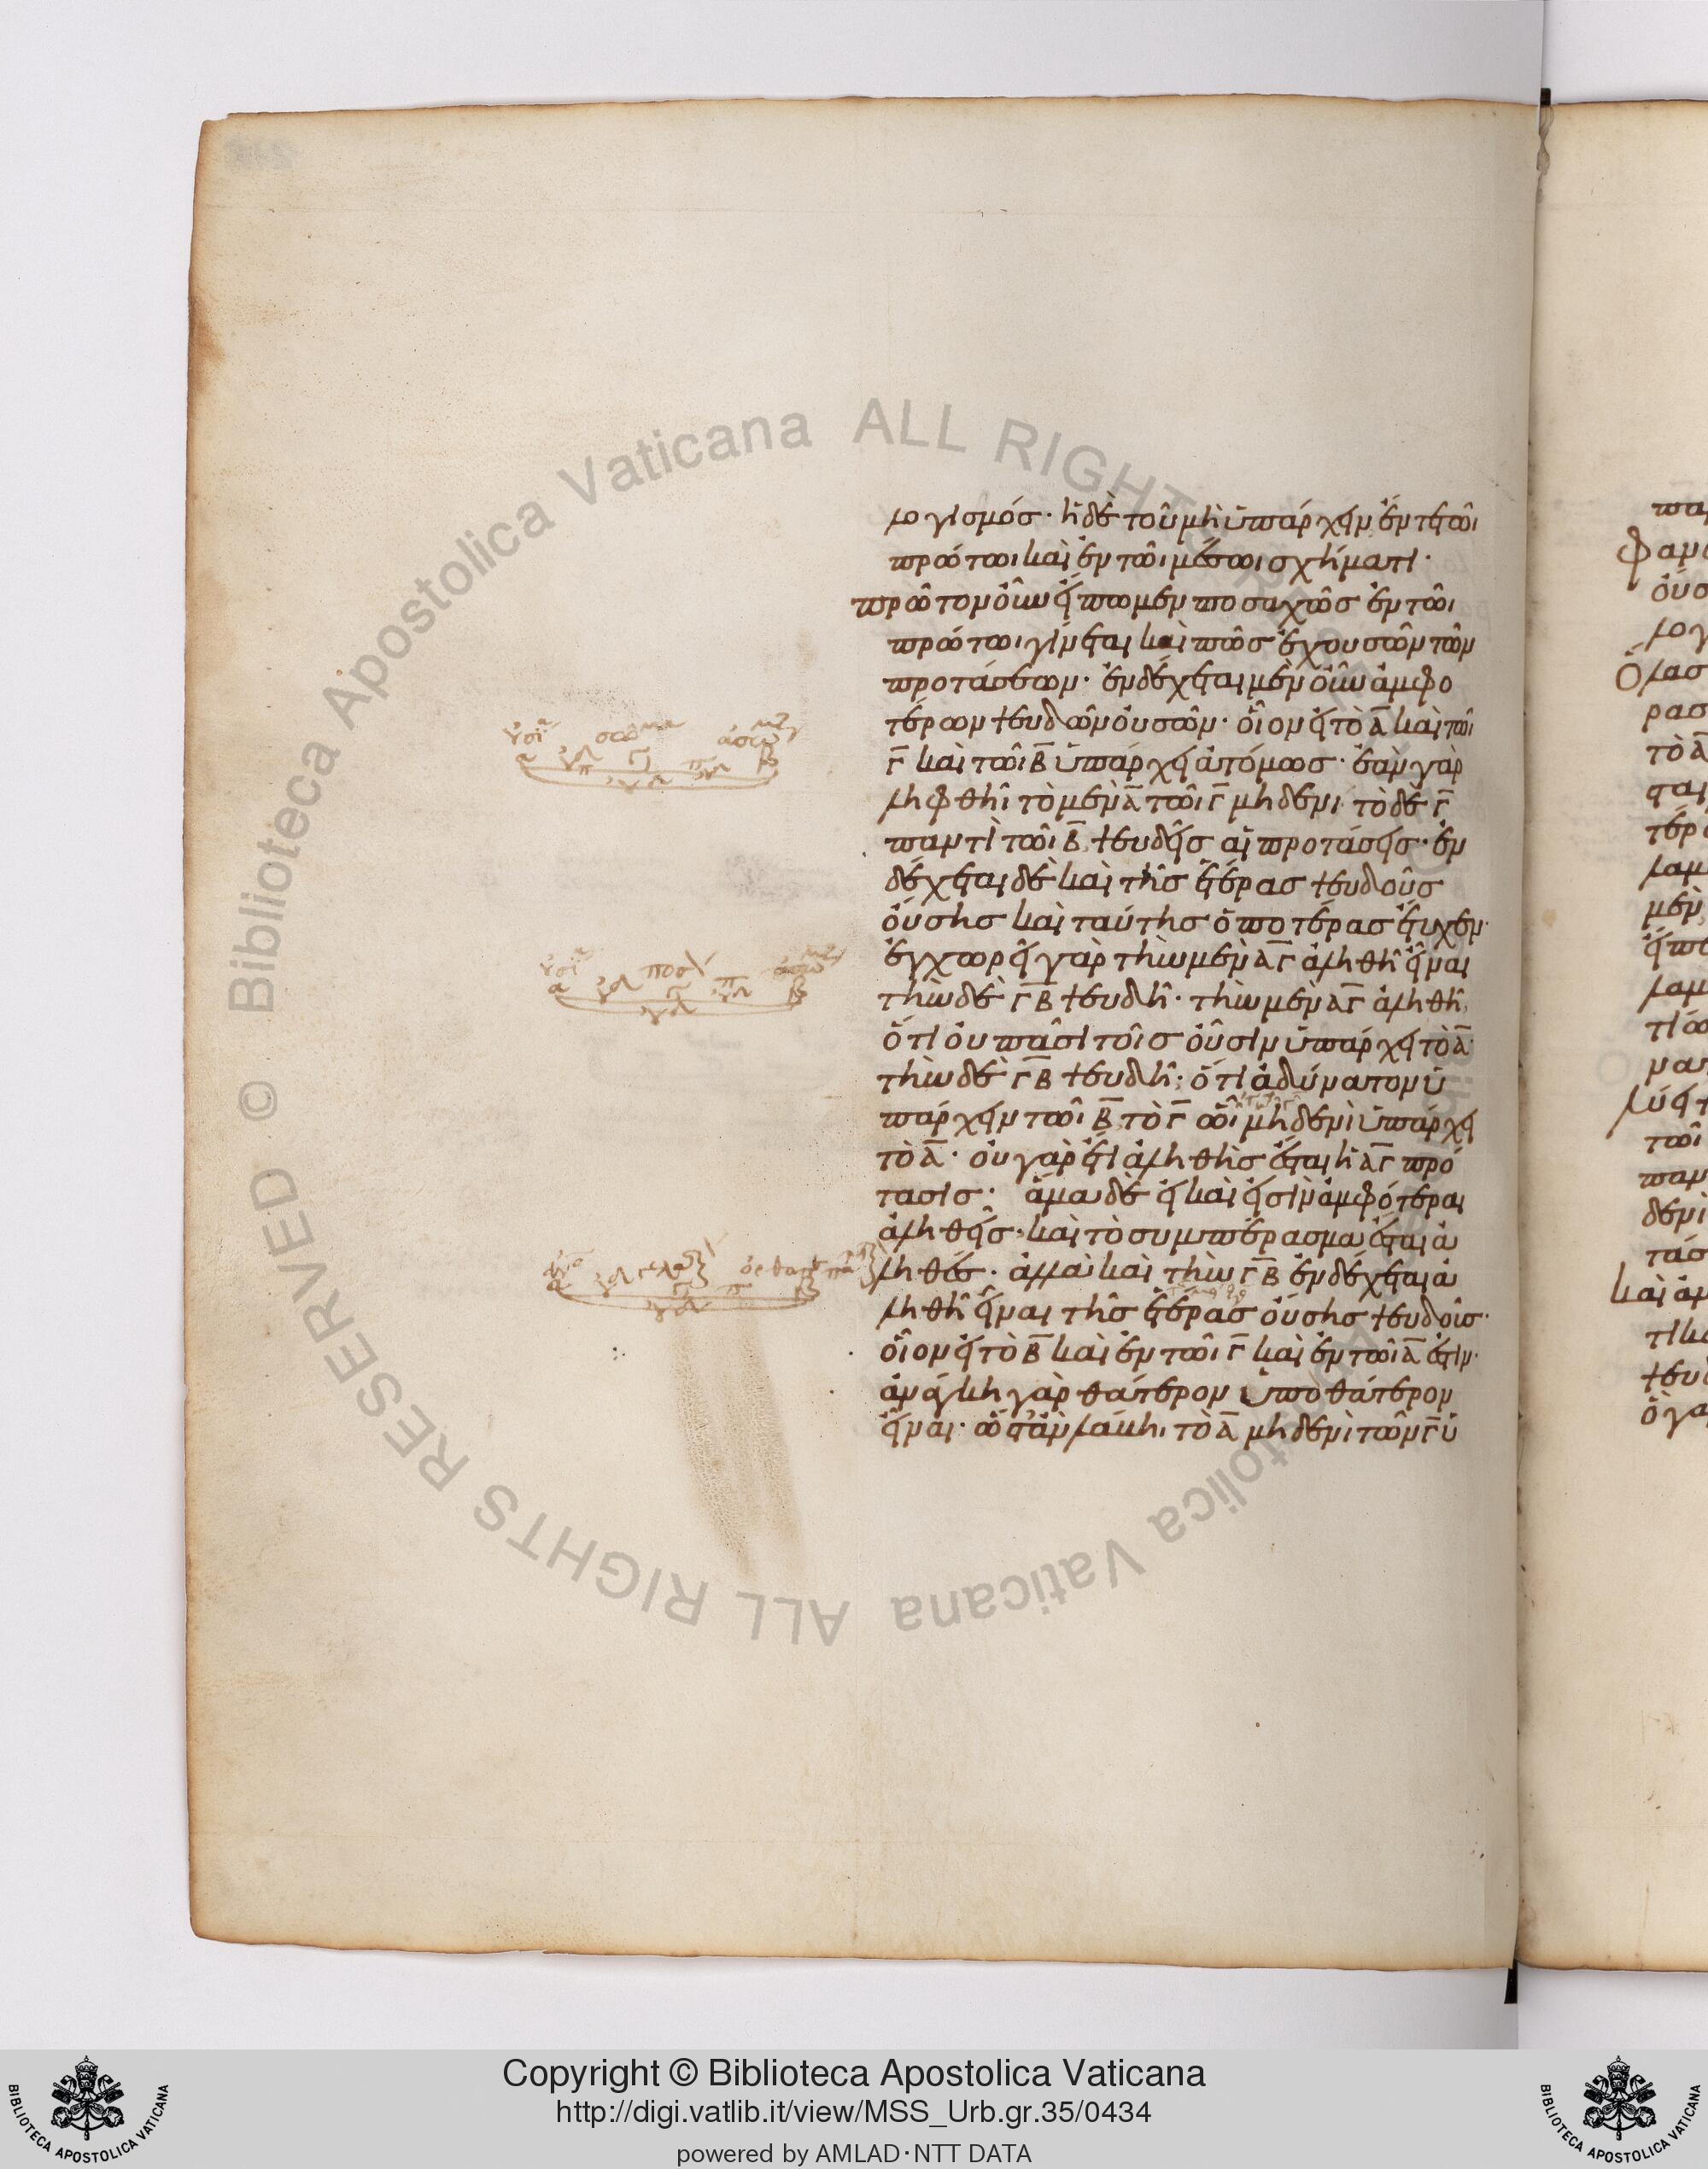 λογισμός· ἡ δὲ τοῦ μὴ ὑπάρχειν ἔν τε τῶι
πρώτωι καὶ ἐν τῶι μέσωι σχήματι·
πρῶτον οὖν εἴπωμεν ποσαχῶς ἐν τῶι
πρώτωι γίνεται καὶ πῶς ἐχουσῶν τῶν
προτάσεων· ἐνδέχεται μὲν οὖν ἀμφο
τέρων ψευδῶν οὐσῶν· οἷον εἰ τὸ Α καὶ τῶι
Γ καὶ τῶι Β ὑπάρχει ἀτόμως· ἐὰν γὰρ
ληφθῆι τὸ μὲν Α τῶι Γ μηδενὶ τὸ δὲ Γ
παντὶ τῶι Β, ψευδεῖς αἱ προτάσεις· ἐν
δέχεται δὲ καὶ τῆς ἑτέρας ψευδοῦς
οὔσης καὶ ταύτης ὁποτέρας ἔτυχεν·
ἐγχωρεῖ γὰρ τὴν μὲν ΑΓ ἀληθῆ εἶναι
τὴν δὲ ΓΒ ψευδῆ· τὴν μὲν ΑΓ ἀληθῆ,
ὅτι οὐ πᾶσι τοῖς οὖσιν ὑπάρχει τὸ Α·
τὴν δὲ ΓΒ ψευδῆ· ὅτι ἀδύνατον ὑ
πάρχειν τῶι Β τὸ Γ ὧι μηδενὶ ὑπάρχει
τὸ Α· οὐ γὰρ ἔτι ἀληθὴς ἔσται ἡ ΑΓ πρό
τασις· ἅμα δὲ εἰ καὶ εἰσὶν ἀμφότεραι
ἀληθεῖς· καὶ τὸ συμπέρασμα ἔσται ἀ
ληθές· ἀλλὰ καὶ τὴν ΓΒ ἐνδέχεται ἀ
ληθῆ εἶναι τῆς ἑτέρας οὔσης ψευδοῦς·
οἷον εἰ τὸ Β καὶ ἐν τῶι Γ καὶ ἐν τῶι Α ἐστίν·
ἀνάγκη γὰρ θάτερον ὑπὸ θάτερον
εἶναι· ὥστ' ἂν λάβηι τὸ Α μηδενὶ τῶν Γ ὑ
Copyright © Biblioteca Apostolica Vaticana
http://digi.vatlib.it/view/MSS_Urb.gr.35/0434
powered by AMLAD·NTT DATA
BIBLIOTECA APOSTOLICA VATICANA
BIBLIOTECA APOSTOLICA VATICANA
© Biblioteca Apostolica Vaticana ALL RIGHTS RESERVED